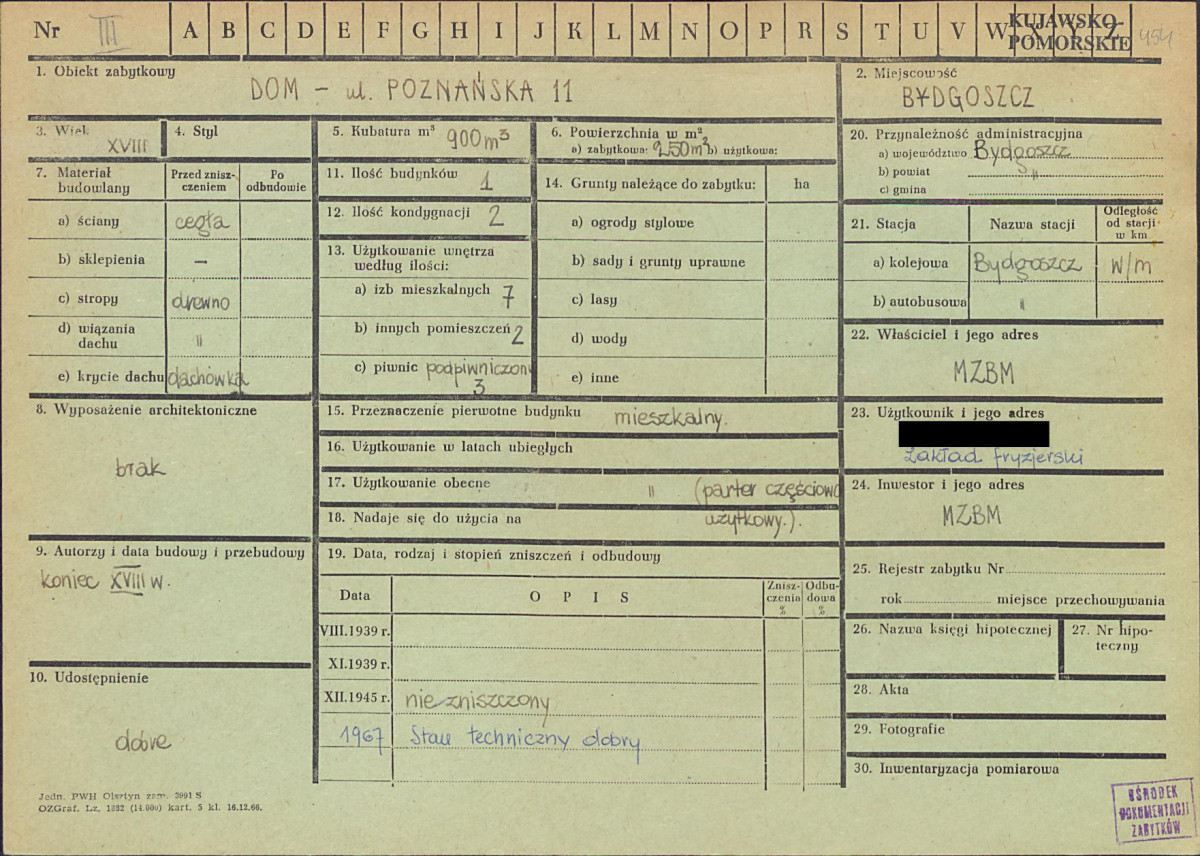 Nr III A B C D E F G H I J K L M N O P R S T U V W X Y Z KUJAWSKO-
POMORSKIE 454
1. Obiekt zabytkowy
DOM - ul. POZNAŃSKA 11
2. Miejscowość
BYDGOSZCZ
3. Wiek
XVIII
4. Styl
5. Kubatura m³ 900 m³
6. Powierzchnia w m²
a) zabytkowa: 250 m² b) użytkowa:
20. Przynależność administracyjna
a) województwo Bydgoszcz
b) powiat "
c) gmina
7. Materiał budowlany
Przed znisz-
czeniem
Po
odbudowie
a) ściany cegła
b) sklepienia —
c) stropy drewno
d) wiązania
dachu "
e) krycie dachu dachówka
11. Ilość budynków 1
12. Ilość kondygnacji 2
13. Użytkowanie wnętrza
według ilości:
a) izb mieszkalnych 7
b) innych pomieszczeń 2
c) piwnic podpiwniczony
3
14. Grunty należące do zabytku: ha
a) ogrody stylowe
b) sady i grunty uprawne
c) lasy
d) wody
e) inne
21. Stacja Nazwa stacji
Odległość
od stacji
w km
a) kolejowa Bydgoszcz w/m
b) autobusowa "
22. Właściciel i jego adres
MZBM
8. Wyposażenie architektoniczne
brak
15. Przeznaczenie pierwotne budynku mieszkalny.
16. Użytkowanie w latach ubiegłych
17. Użytkowanie obecne " (parter częściowo
18. Nadaje się do użycia na użytkowy.).
23. Użytkownik i jego adres
Zakład fryzjerski
24. Inwestor i jego adres
MZBM
9. Autorzy i data budowy i przebudowy
koniec XVIII w.
19. Data, rodzaj i stopień zniszczeń i odbudowy
Data OPIS
Znisz-
czenia
%
Odbu-
dowa
%
VIII.1939 r.
XI.1939 r.
XII.1945 r. nie zniszczony
1967 Stan techniczny dobry
25. Rejestr zabytku Nr
rok miejsce przechowywania
26. Nazwa księgi hipotecznej
27. Nr hipo-
teczny
10. Udostępnienie
dobre
28. Akta
29. Fotografie
30. Inwentaryzacja pomiarowa
Jedn. PWH Olsztyn zam. 3991 S
OZGraf. Lz. 1882 (14.000) kart. 5 kl. 16.12.66.
OŚRODEK
DOKUMENTACJI
ZABYTKÓW